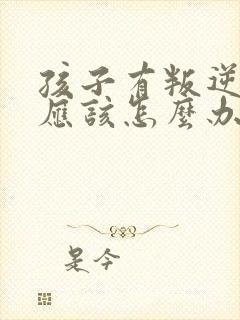 孩子有叛逆
應該怎麼办
是今